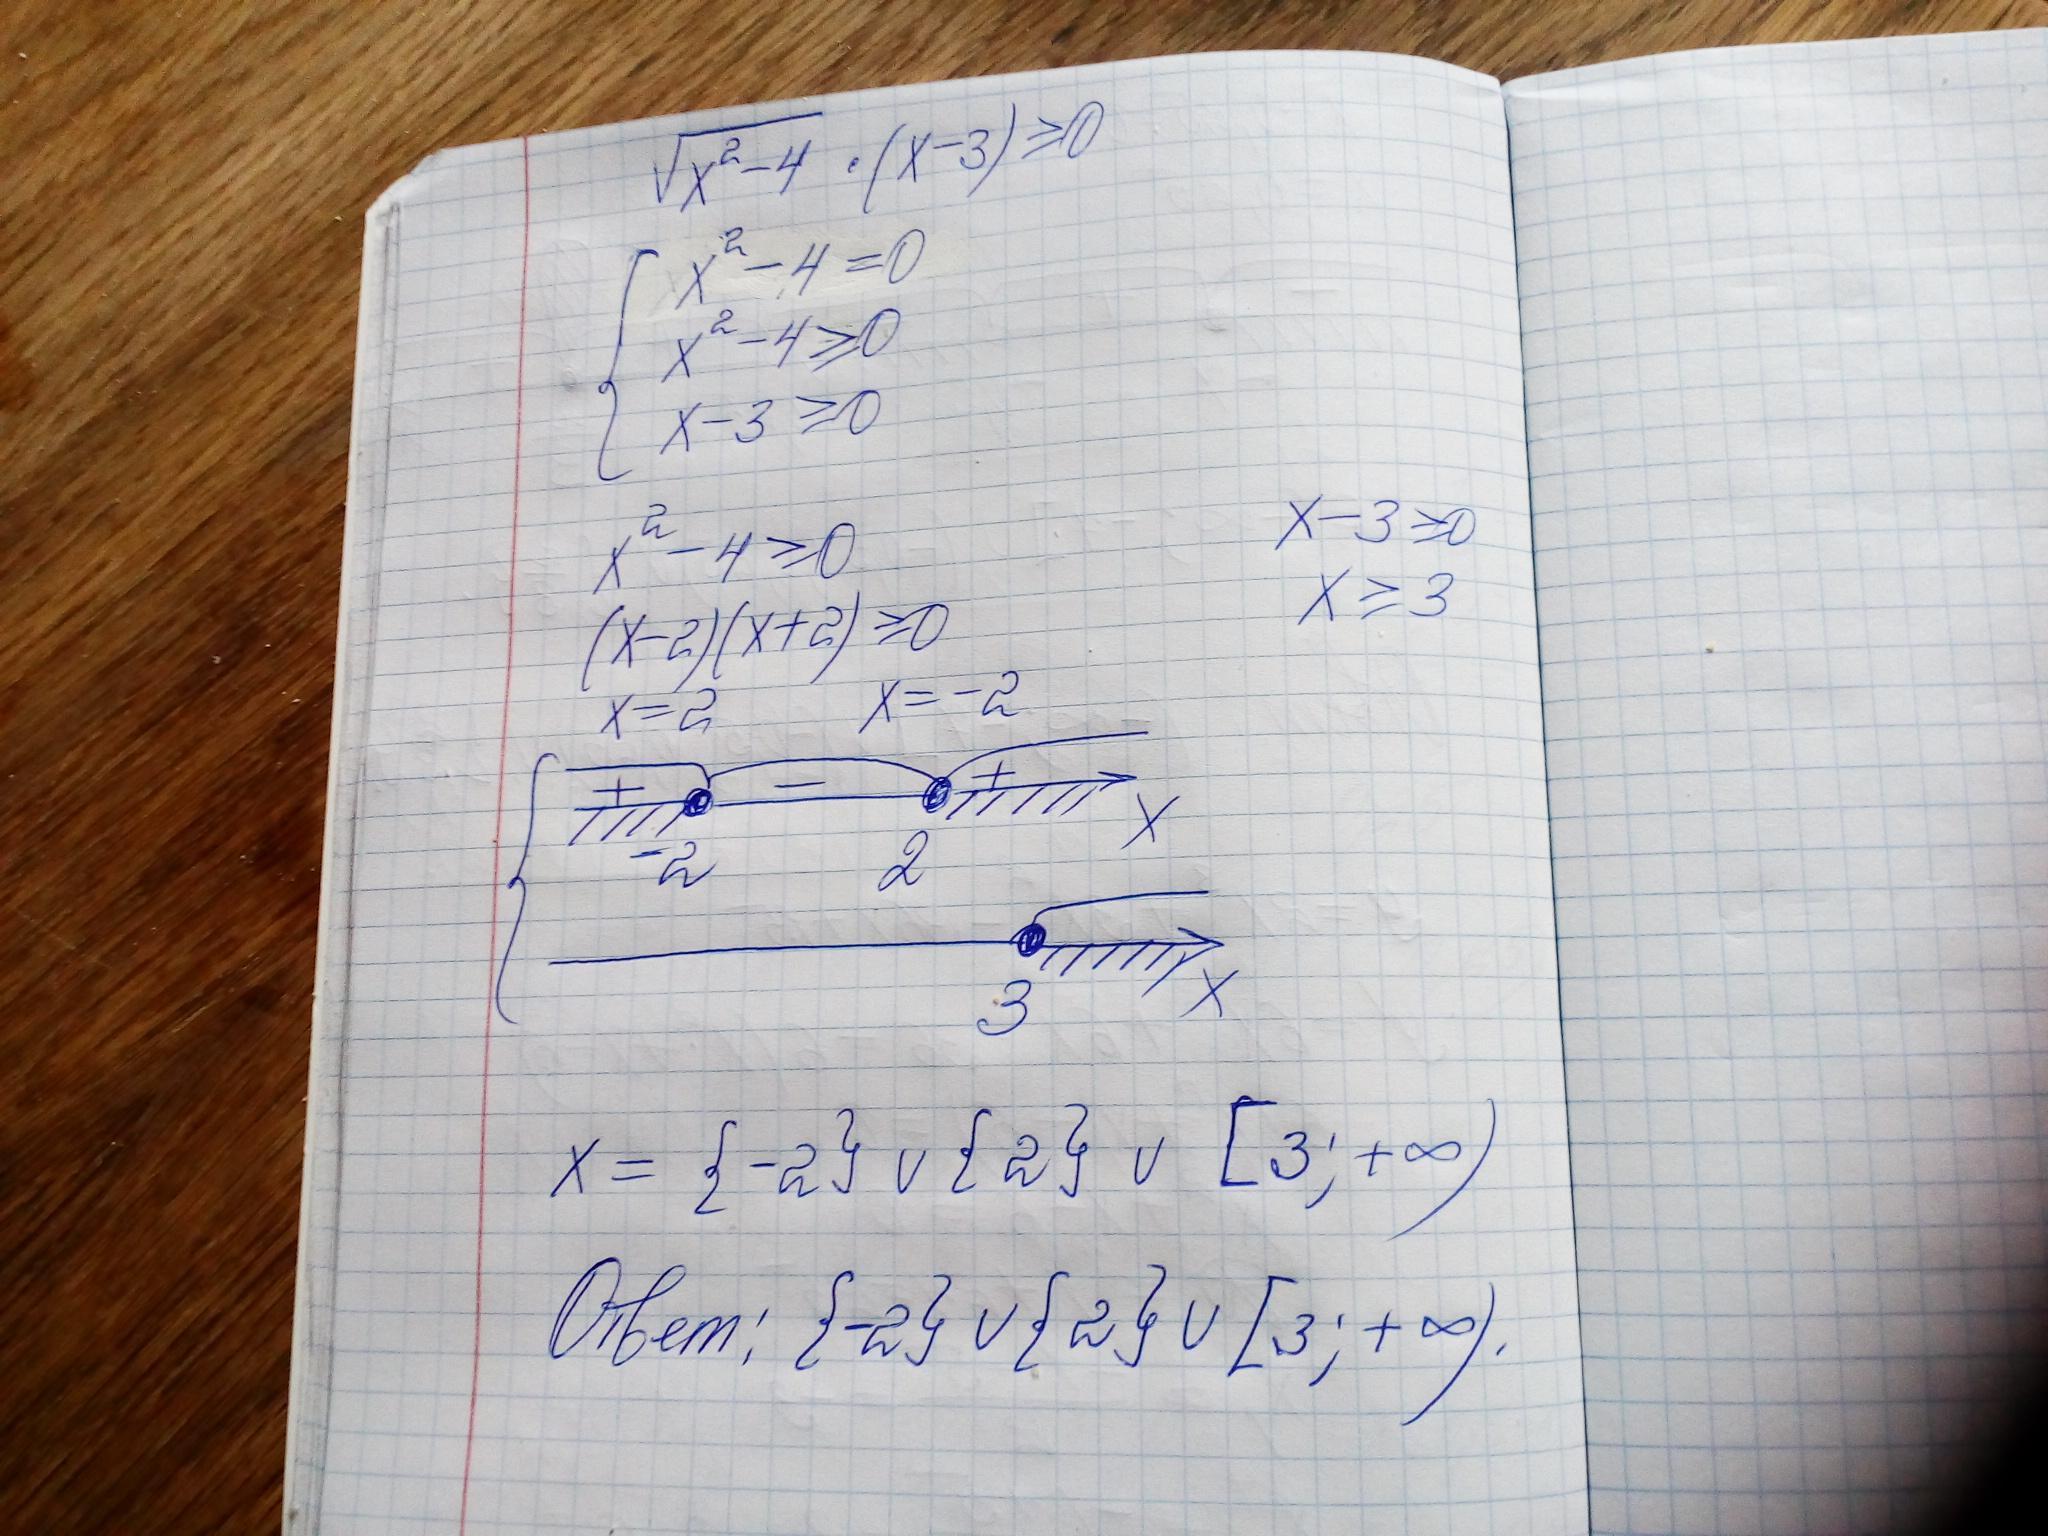 √x²-4 · (x-3) ≥ 0
x²-4=0
x²-4≥0
x-3≥0
x²-4≥0
(x-2)(x+2)≥0
x=2 x=-2
x-3≥0
x≥3
+ - +
-2 2 x
3 x
x = {-2} ∪ {2} ∪ [3; +∞)
Ответ: {-2} ∪ {2} ∪ [3; +∞).